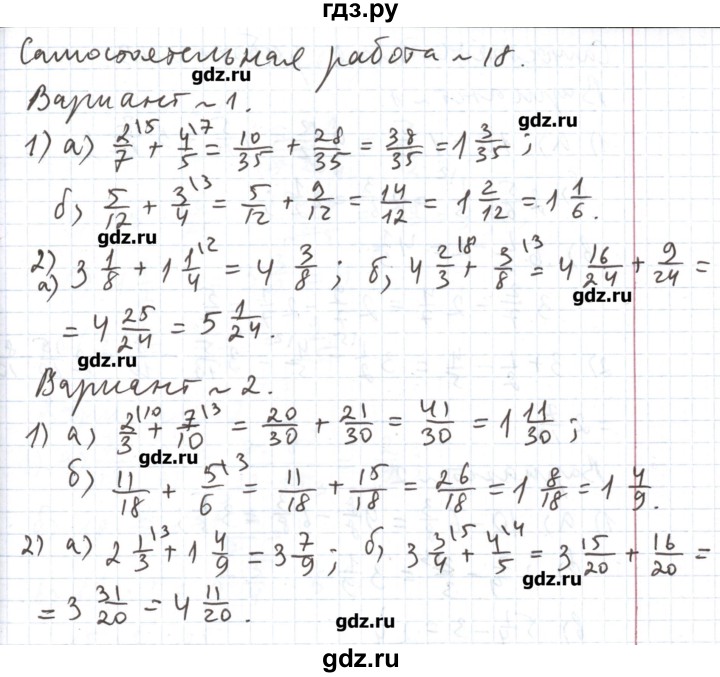 гдз.ру
Самостоятельная работа ~ 18.
gdz.ru
Вариант ~ 1.
gdz.ru
1) а) 2/7\5 + 4/5\7 = 10/35 + 28/35 = 38/35 = 1 3/35 ;
б) 5/12 + 3/4\3 = 5/12 + 9/12 = 14/12 = 1 2/12 = 1 1/6 .
gdz.ru
2) а) 3 1/8 + 1 1/4\2 = 4 3/8 ; б) 4 2/3\8 + 3/8\3 = 4 16/24 + 9/24 =
gdz.ru
= 4 25/24 = 5 1/24 .
gdz.ru
Вариант ~ 2.
1) а) 2/3\10 + 7/10\3 = 20/30 + 21/30 = 41/30 = 1 11/30 ;
gdz.ru
б) 11/18 + 5/6\3 = 11/18 + 15/18 = 26/18 = 1 8/18 = 1 4/9 .
gdz.ru
2) а) 2 1/3\3 + 1 4/9 = 3 7/9 ; б) 3 3/4\5 + 4/5\4 = 3 15/20 + 16/20 =
gdz.ru
= 3 31/20 = 4 11/20 .
gdz.ru
гдз.ру